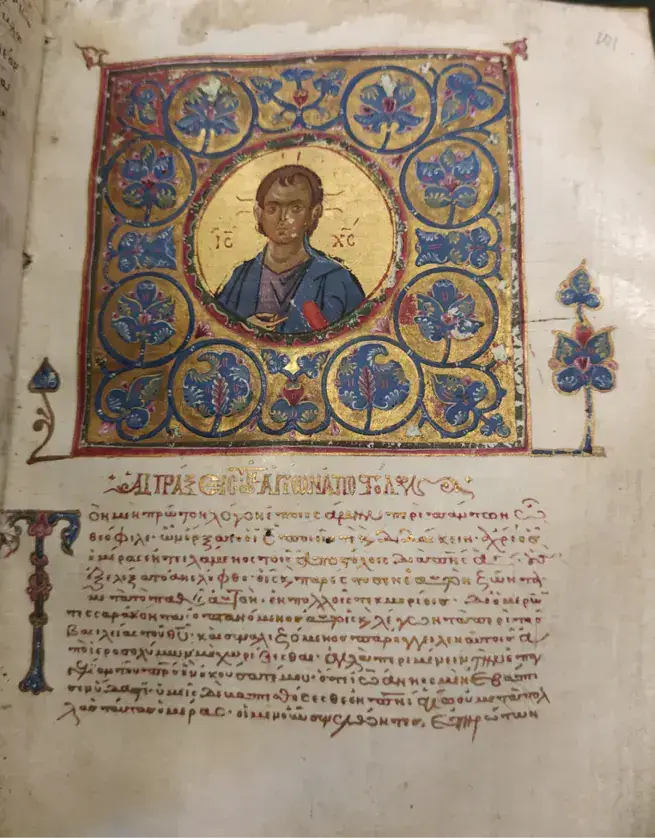 ΙΣ ΧΣ
ΑΙ ΠΡΑΞΕΙΣ ΤΩΝ ΑΓΙΩΝ ΑΠΟΣΤΟΛΩΝ
Τὸν μὲν πρῶτον λόγον ἐποιησάμην περὶ πάντων ὦ
θεόφιλε· ὧν ἤρξατο ὁ ις ποιεῖν τε καὶ διδάσκειν· ἄχρι ἧς
ἡμέρας ἐντειλάμενος τοῖς ἀποστόλοις διὰ πνς
ἐξελέξατο ἀνελήφθη· οἷς καὶ παρέστησεν ἑαυτὸν ζῶντα
μετὰ τὸ παθεῖν αὐτὸν· ἐν πολλοῖς τεκμηρίοις· δι' ἡμερῶν
τεσσαράκοντα ὀπτανόμενος αὐτοῖς καὶ λέγων τὰ περὶ τῆς
βασιλείας τοῦ θυ· καὶ συναλιζόμενος παρήγγειλεν αὐτοῖς ἀ
πὸ ἱεροσολύμων μὴ χωρίζεσθαι· ἀλλὰ περιμένειν τὴν
τοῦ πρς ἣν ἠκούσατέ μου· ὅτι ἰωάννης μὲν ἐβάπτι
σεν ὕδατι· ὑμεῖς δὲ βαπτισθήσεσθε ἐν πνι ἁγίω οὐ μετὰ πολ
λὰς ταύτας ἡμέρας· οἱ μὲν οὖν συνελθόντες, ἐπηρώτων